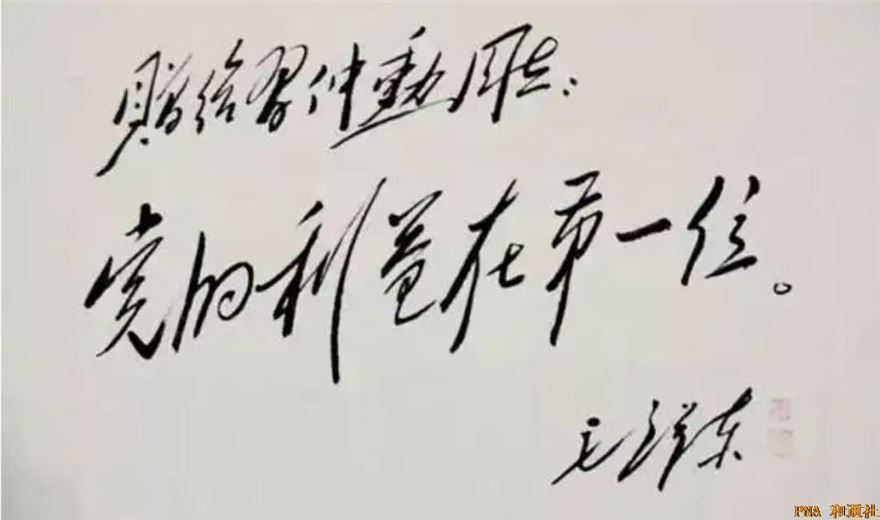 赠给习仲勳同志：
党的利益在第一位。
毛泽东
PNA 和通社